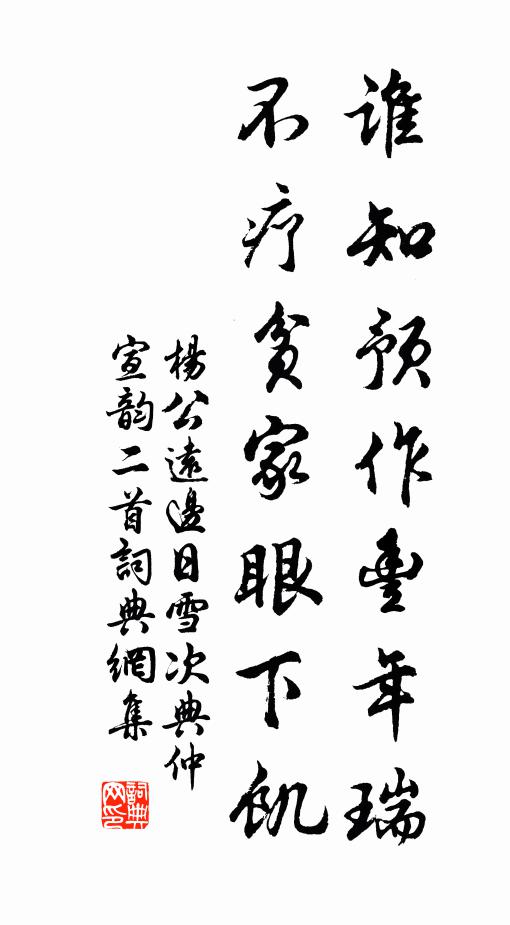 誰知預作豐年瑞
不疗貧家眼下飢
楊公遠邊日雪次典仲
宣韵二首詞典網集
詞典网印